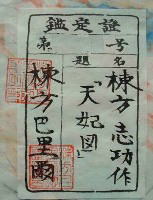 鑑定證
第 号
題 名
棟方志功作
「天妃図」
棟方巴里爾